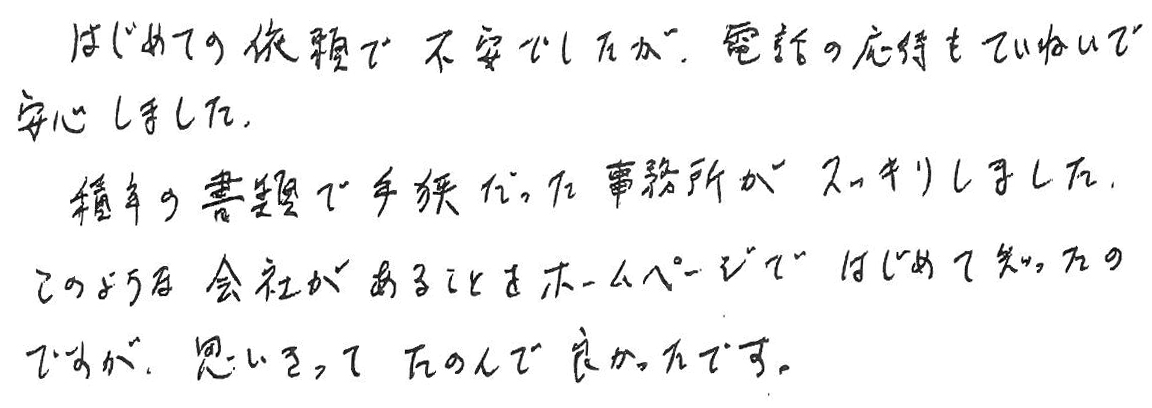 はじめての依頼で不安でしたが、電話の応待もていねいで
安心しました。
積年の書類で手狭だった事務所がスッキリしました。
このような会社があることをホームページではじめて知ったの
ですが、思いきってたのんで良かったです。